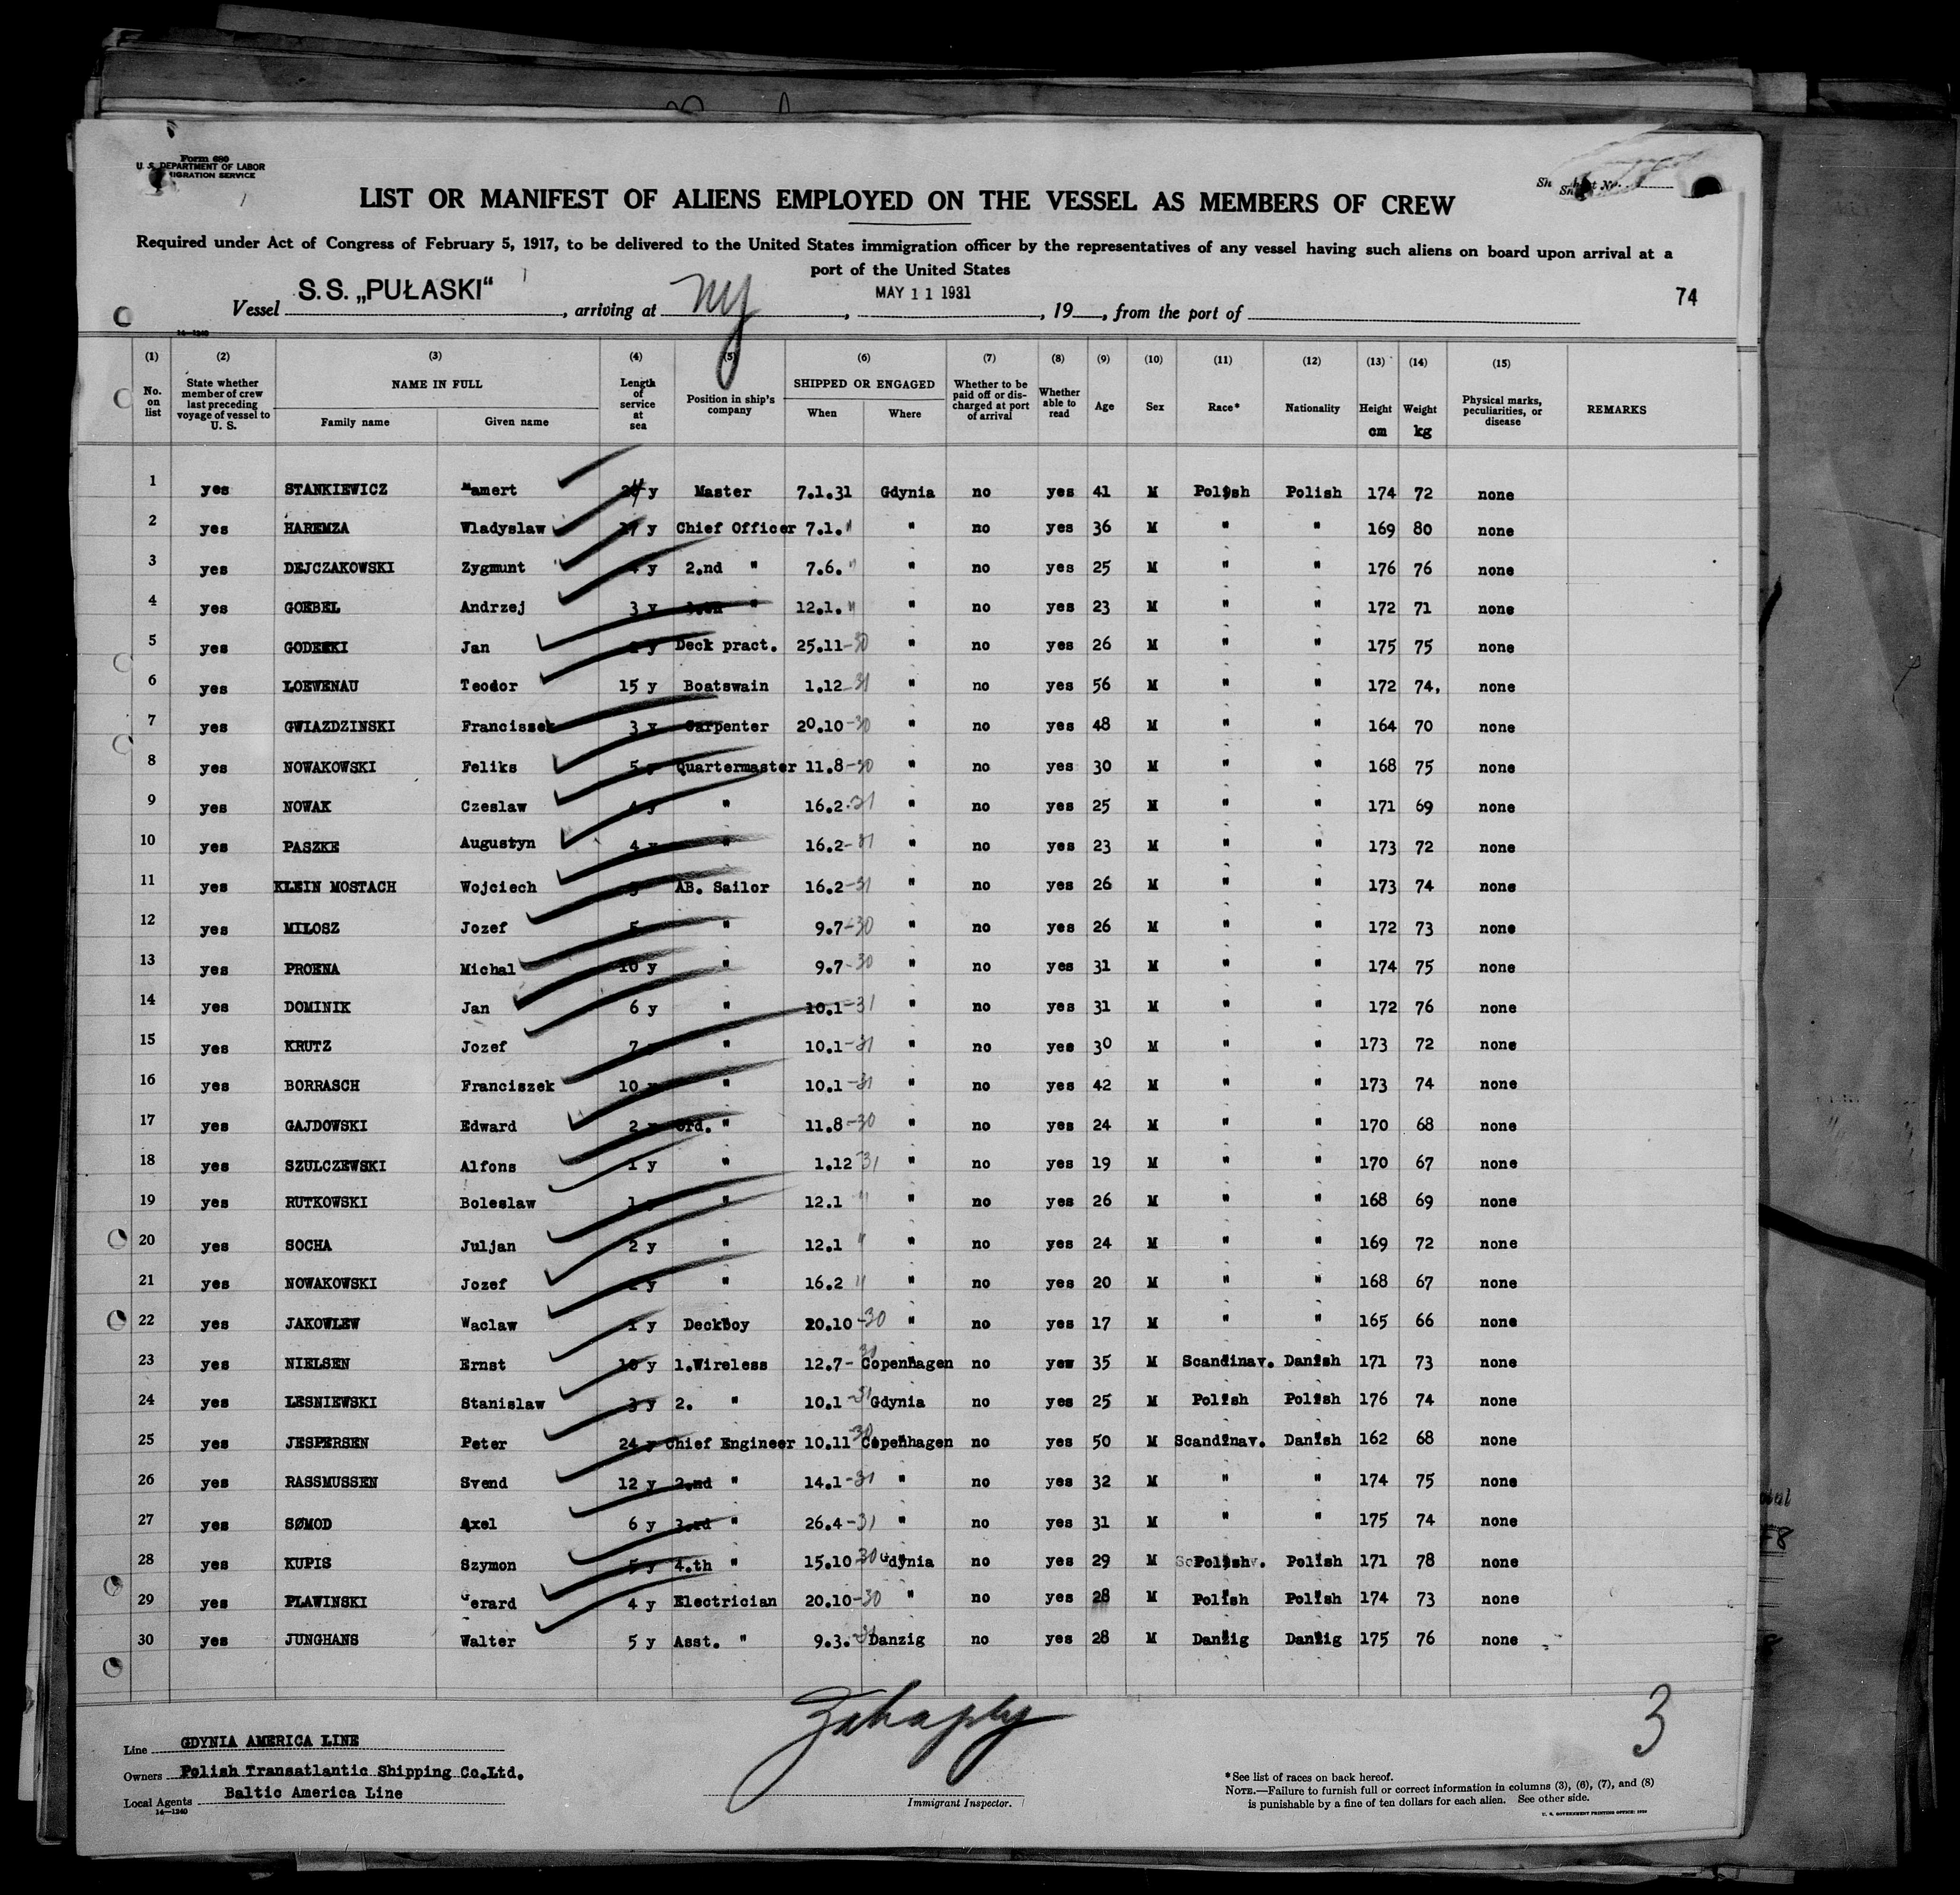 Form 680
U. S. DEPARTMENT OF LABOR
IMMIGRATION SERVICE
LIST OR MANIFEST OF ALIENS EMPLOYED ON THE VESSEL AS MEMBERS OF CREW
Required under Act of Congress of February 5, 1917, to be delivered to the United States immigration officer by the representatives of any vessel having such aliens on board upon arrival at a
port of the United States
Vessel S.S. „PUŁASKI“, arriving at NY, MAY 11 1931, 19, from the port of
74
14—1240
(1) (2) (3) (4) (5) (6) (7) (8) (9) (10) (11) (12) (13) (14) (15)
No. on list State whether member of crew last preceding voyage of vessel to U. S. NAME IN FULL Family name Given name Length of service at sea Position in ship's company SHIPPED OR ENGAGED When Where Whether to be paid off or discharged at port of arrival Whether able to read Age Sex Race* Nationality Height cm Weight kg Physical marks, peculiarities, or disease REMARKS
1 yes STANKIEWICZ Mamert y Master 7.1.31 Gdynia no yes 41 M Polish Polish 174 72 none
2 yes HAREMZA Wladyslaw y Chief Officer 7.1. " " no yes 36 M " " 169 80 none
3 yes DEJCZAKOWSKI Zygmunt y 2.nd " 7.6. " " no yes 25 M " " 176 76 none
4 yes GOEBEL Andrzej 3 y " 12.1. " " no yes 23 M " " 172 71 none
5 yes Jan y Deck pract. 25.11-30 " no yes 26 M " " 175 75 none
6 yes LOEWENAU Teodor 15 y Boatswain 1.12-31 " no yes 56 M " " 172 74, none
7 yes GWIAZDZINSKI Franciszek 3 y Carpenter 20.10-30 " no yes 48 M " " 164 70 none
8 yes NOWAKOWSKI Feliks 5 y Quartermaster 11.8-30 " no yes 30 M " " 168 75 none
9 yes NOWAK Czeslaw 4 y " 16.2-31 " no yes 25 M " " 171 69 none
10 yes PASZKE Augustyn 4 y " 16.2-31 " no yes 23 M " " 173 72 none
11 yes KLEIN MOSTACH Wojciech AB. Sailor 16.2-31 " no yes 26 M " " 173 74 none
12 yes MILOSZ Jozef 5 " 9.7-30 " no yes 26 M " " 172 73 none
13 yes PROENA Michal 10 y " 9.7-30 " no yes 31 M " " 174 75 none
14 yes DOMINIK Jan 6 y " 10.1-31 " no yes 31 M " " 172 76 none
15 yes KRUTZ Jozef 7 " 10.1-31 " no yes 30 M " " 173 72 none
16 yes BORRASCH Franciszek 10 y " 10.1-31 " no yes 42 M " " 173 74 none
17 yes GAJDOWSKI Edward 2 y Ord. " 11.8-30 " no yes 24 M " " 170 68 none
18 yes SZULCZEWSKI Alfons 1 y " 1.12-31 " no yes 19 M " " 170 67 none
19 yes RUTKOWSKI Boleslaw 1 y " 12.1 " " no yes 26 M " " 168 69 none
20 yes SOCHA Juljan 2 y " 12.1 " " no yes 24 M " " 169 72 none
21 yes NOWAKOWSKI Jozef y " 16.2 " " no yes 20 M " " 168 67 none
22 yes JAKOWLEW Waclaw 1 y Deckboy 20.10-30 " no yes 17 M " " 165 66 none
23 yes NIELSEN Ernst 10 y 1.Wireless 12.7-30 Copenhagen no yew 35 M Scandinav. Danish 171 73 none
24 yes LESNIEWSKI Stanislaw 3 y 2. " 10.1-31 Gdynia no yes 25 M Polish Polish 176 74 none
25 yes JESPERSEN Peter 24 y Chief Engineer 10.11-30 Copenhagen no yes 50 M Scandinav. Danish 162 68 none
26 yes RASSMUSSEN Svend 12 y 2.nd " 14.1-31 " no yes 32 M " " 174 75 none
27 yes SØMOD Axel 6 y 3.rd " 26.4-31 " no yes 31 M " " 175 74 none
28 yes KUPIS Szymon 5 y 4.th " 15.10-30 Gdynia no yes 29 M Polish Polish 171 78 none
29 yes PLAWINSKI Gerard 4 y Electrician 20.10-30 " no yes 28 M Polish Polish 174 73 none
30 yes JUNGHANS Walter 5 y Asst. " 9.3.-31 Danzig no yes 28 M Danzig Danzig 175 76 none
3
Line GDYNIA AMERICA LINE
Owners Polish Transatlantic Shipping Co.Ltd.
Local Agents Baltic America Line
14—1240
Immigrant Inspector.
*See list of races on back hereof.
NOTE.—Failure to furnish full or correct information in columns (3), (6), (7), and (8)
is punishable by a fine of ten dollars for each alien. See other side.